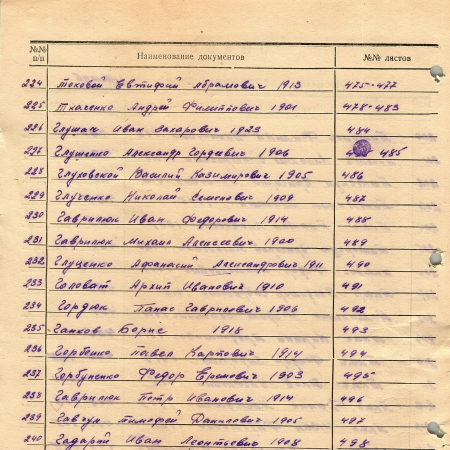 №№ п/п Наименование документов №№ листов
224 Токовой Евтифий Абрамович 1913 475-477
225 Ткаченко Андрей Филиппович 1901 478-483
226 Глушач Иван Захарович 1923 484
227 Глушенко Александр Гордеевич 1906 485
228 Глуховской Василий Казимирович 1905 486
229 Глученко Николай Семенович 1909 487
230 Гаврилюк Иван Федорович 1914 488
231 Гаврилюк Михаил Алексеевич 1900 489
232 Глуценко Афанасий Александрович 1911 490
233 Головат Архип Иванович 1910 491
234 Гордюк Панас Гаврилович 1906 492
235 Ганков Борис 1918 493
236 Горбенко Павел Карпович 1914 494
237 Горбуненко Федор Еремович 1903 495
238 Гаврилюк Петр Иванович 1914 496
239 Гавчун Тимофей Данилович 1905 497
240 Гадарай Иван Леонтьевич 1908 498